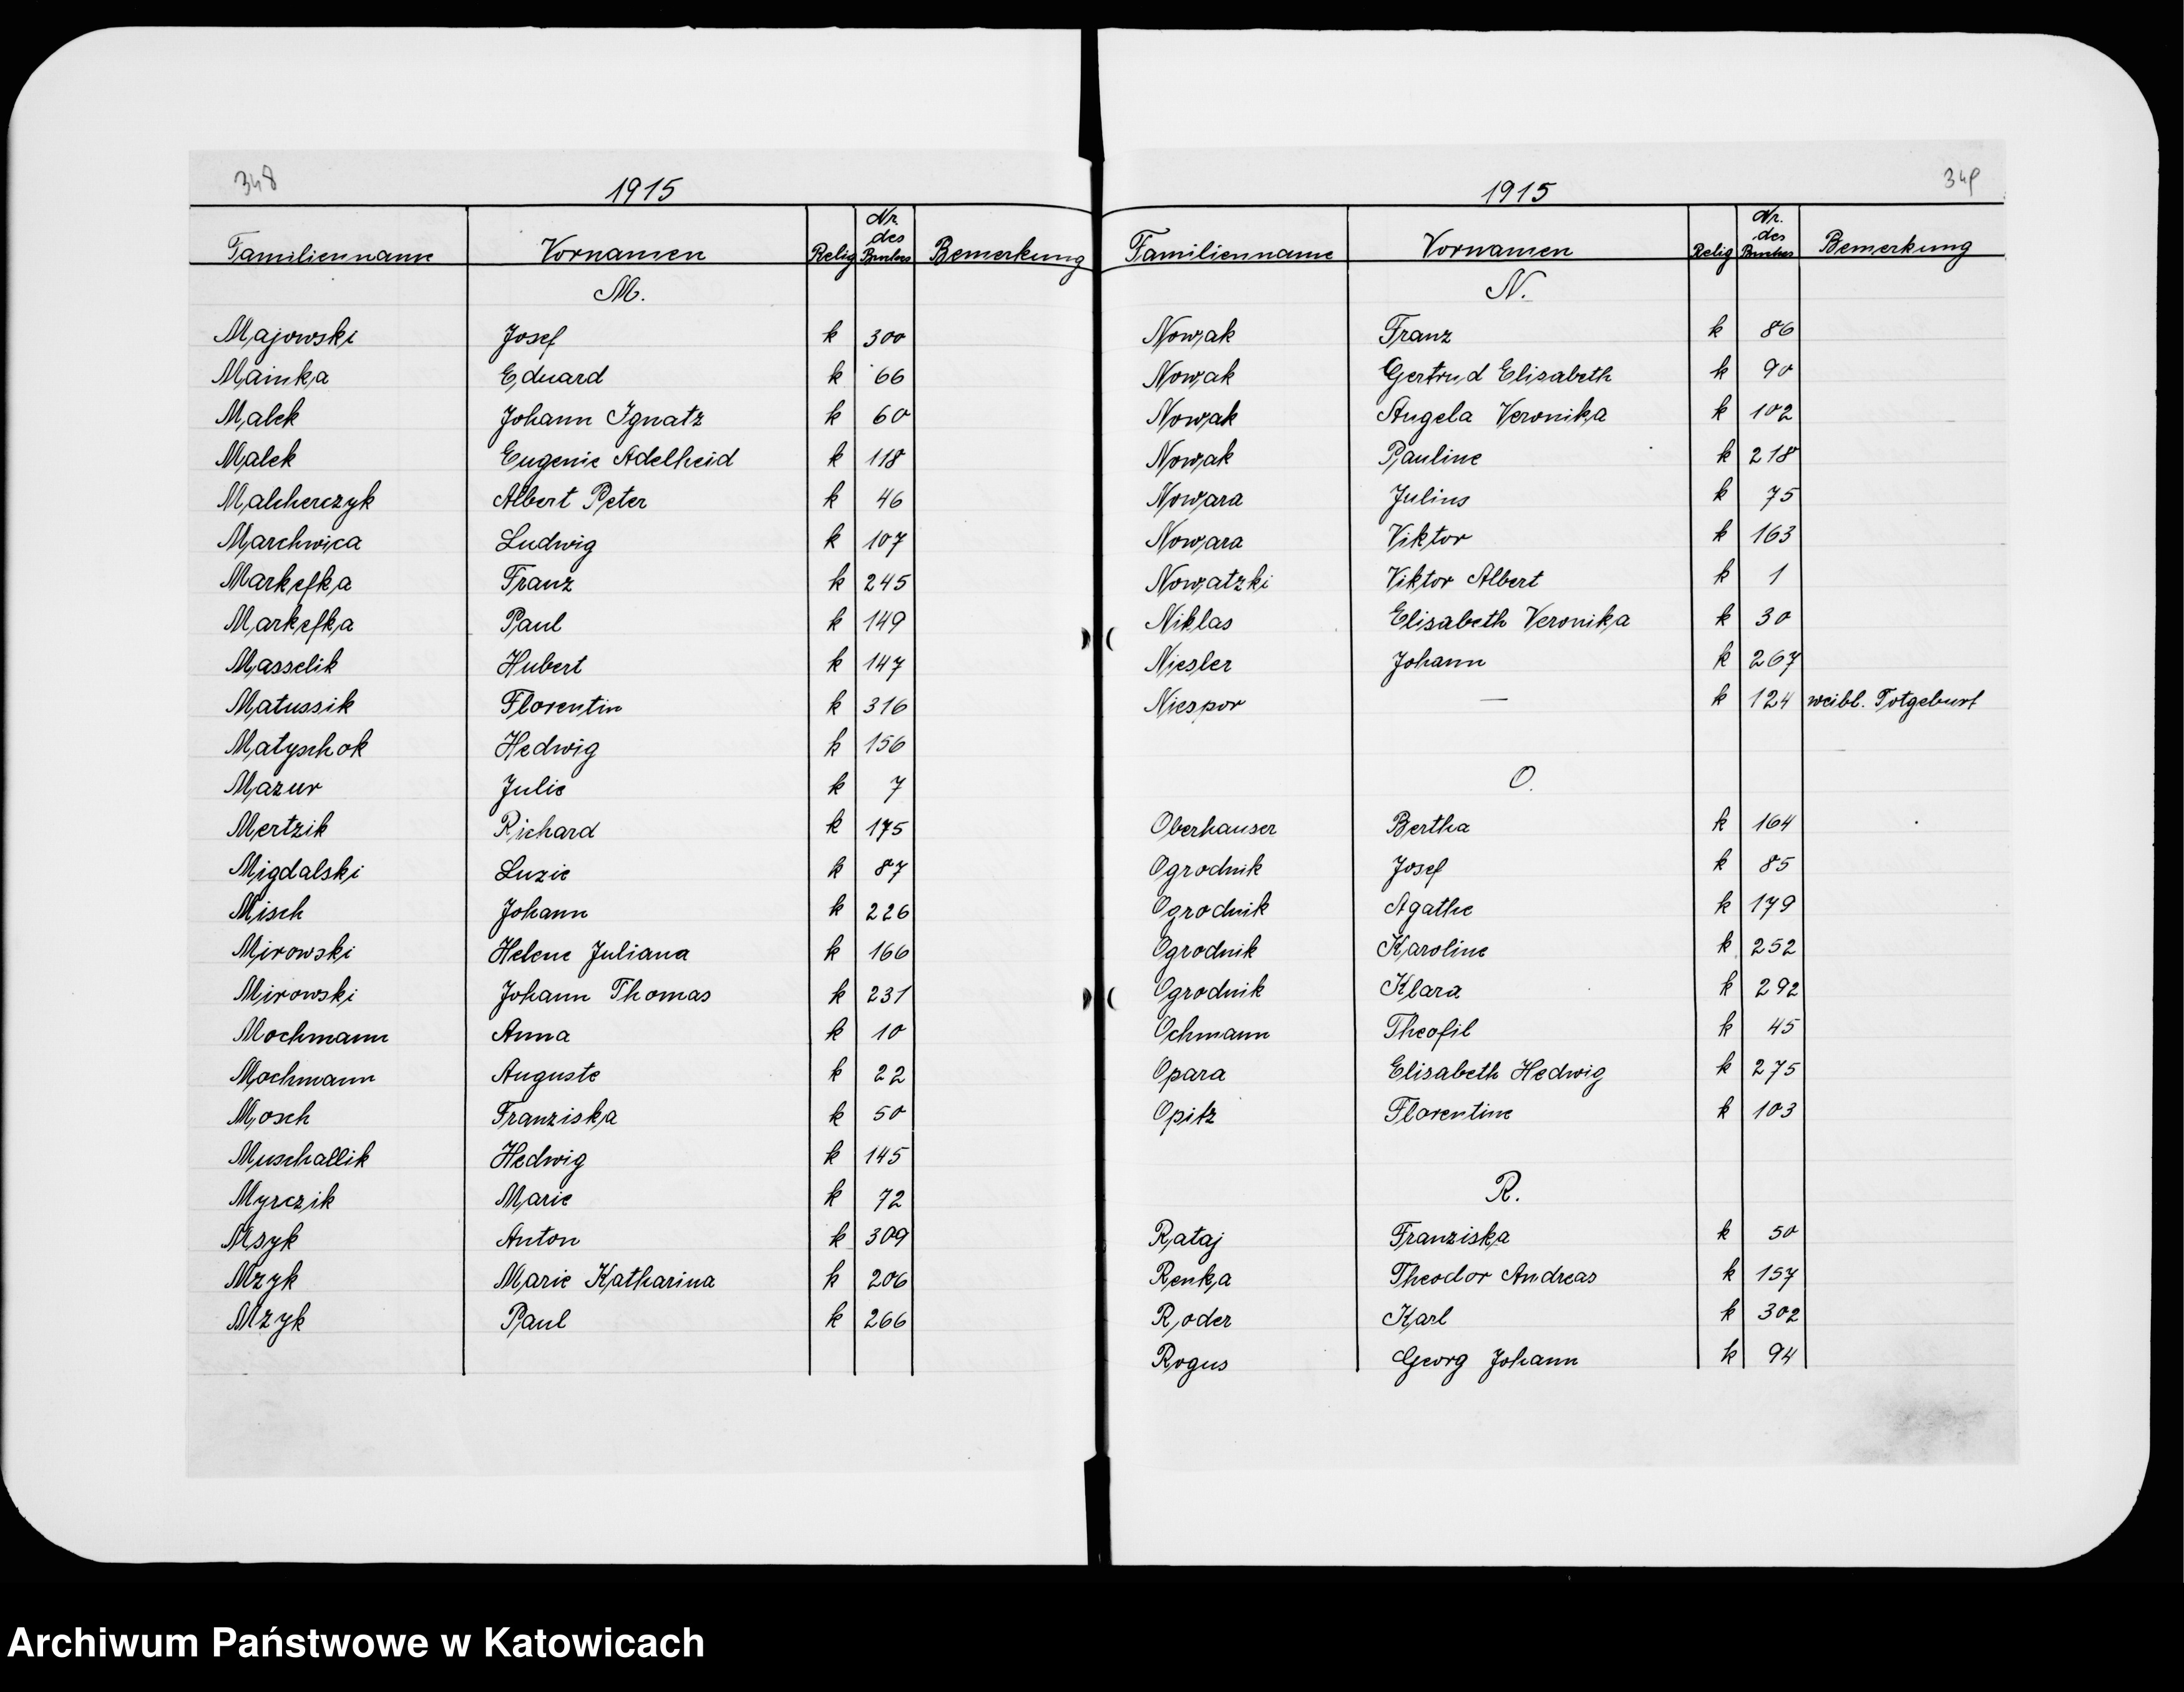 348
1915
Familienname Vornamen Relig Nr. des Buches Bemerkung
M.
Majowski Josef k 300
Mainka Eduard k 66
Malek Johann Ignatz k 60
Malek Eugenie Adelheid k 118
Malcherczyk Albert Peter k 46
Marchwica Ludwig k 107
Markefka Franz k 245
Markefka Paul k 149
Masselik Hubert k 147
Matussik Florentin k 316
Matyschok Hedwig k 156
Mazur Julie k 7
Mertzik Richard k 175
Migdalski Luzie k 87
Misch Johann k 226
Mirowski Helene Juliana k 166
Mirowski Johann Thomas k 231
Mochmann Anna k 10
Mochmann Auguste k 22
Mosch Franziska k 50
Muschallik Hedwig k 145
Myrczik Marie k 72
Msyk Anton k 309
Mzyk Marie Katharina k 206
Mzyk Paul k 266
1915
349
Familienname Vornamen Relig Nr. des Buches Bemerkung
N.
Nowak Franz k 86
Nowak Gertrud Elisabeth k 90
Nowak Angela Veronika k 102
Nowak Pauline k 218
Nowara Julius k 75
Nowara Viktor k 163
Nowatzki Viktor Albert k 1
Niklas Elisabeth Veronika k 30
Niesler Johann k 267
Niespor — k 124 weibl. Totgeburt
O.
Oberhauser Bertha k 164
Ogrodnik Josef k 85
Ogrodnik Agathe k 179
Ogrodnik Karoline k 252
Ogrodnik Klara k 292
Ochmann Theofil k 45
Opara Elisabeth Hedwig k 275
Opitz Florentine k 103
R.
Rataj Franziska k 50
Renka Theodor Andreas k 157
Roder Karl k 302
Rogus Georg Johann k 94
Archiwum Państwowe w Katowicach